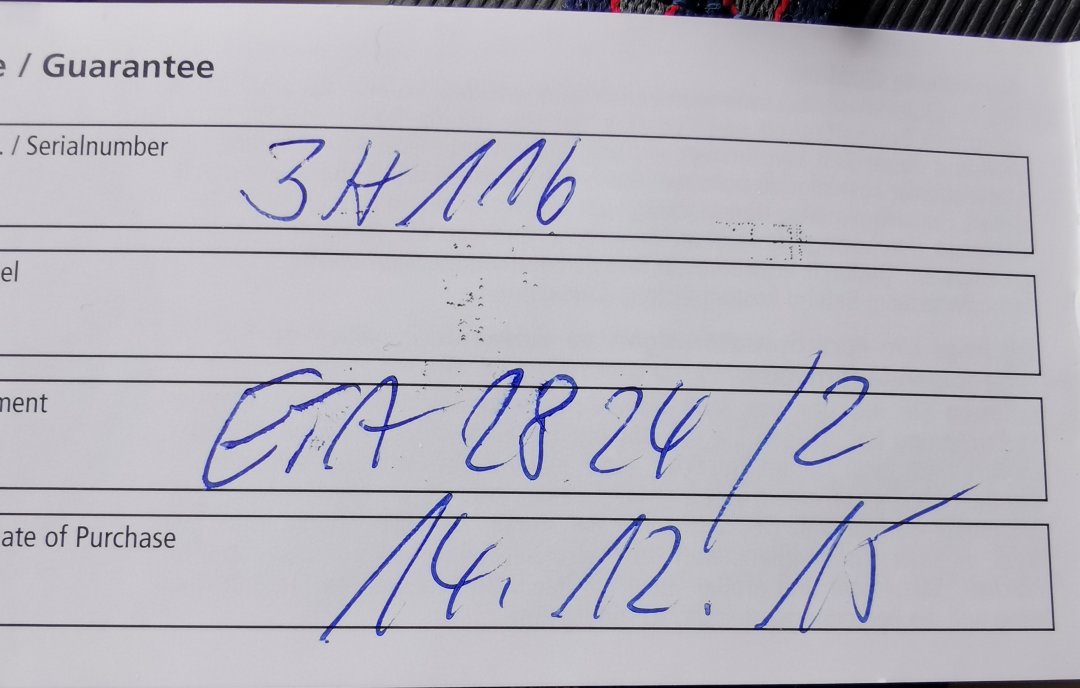 e / Guarantee
. / Serialnumber 3H116
el
ment ETA 2824/2
ate of Purchase 14. 12. 15